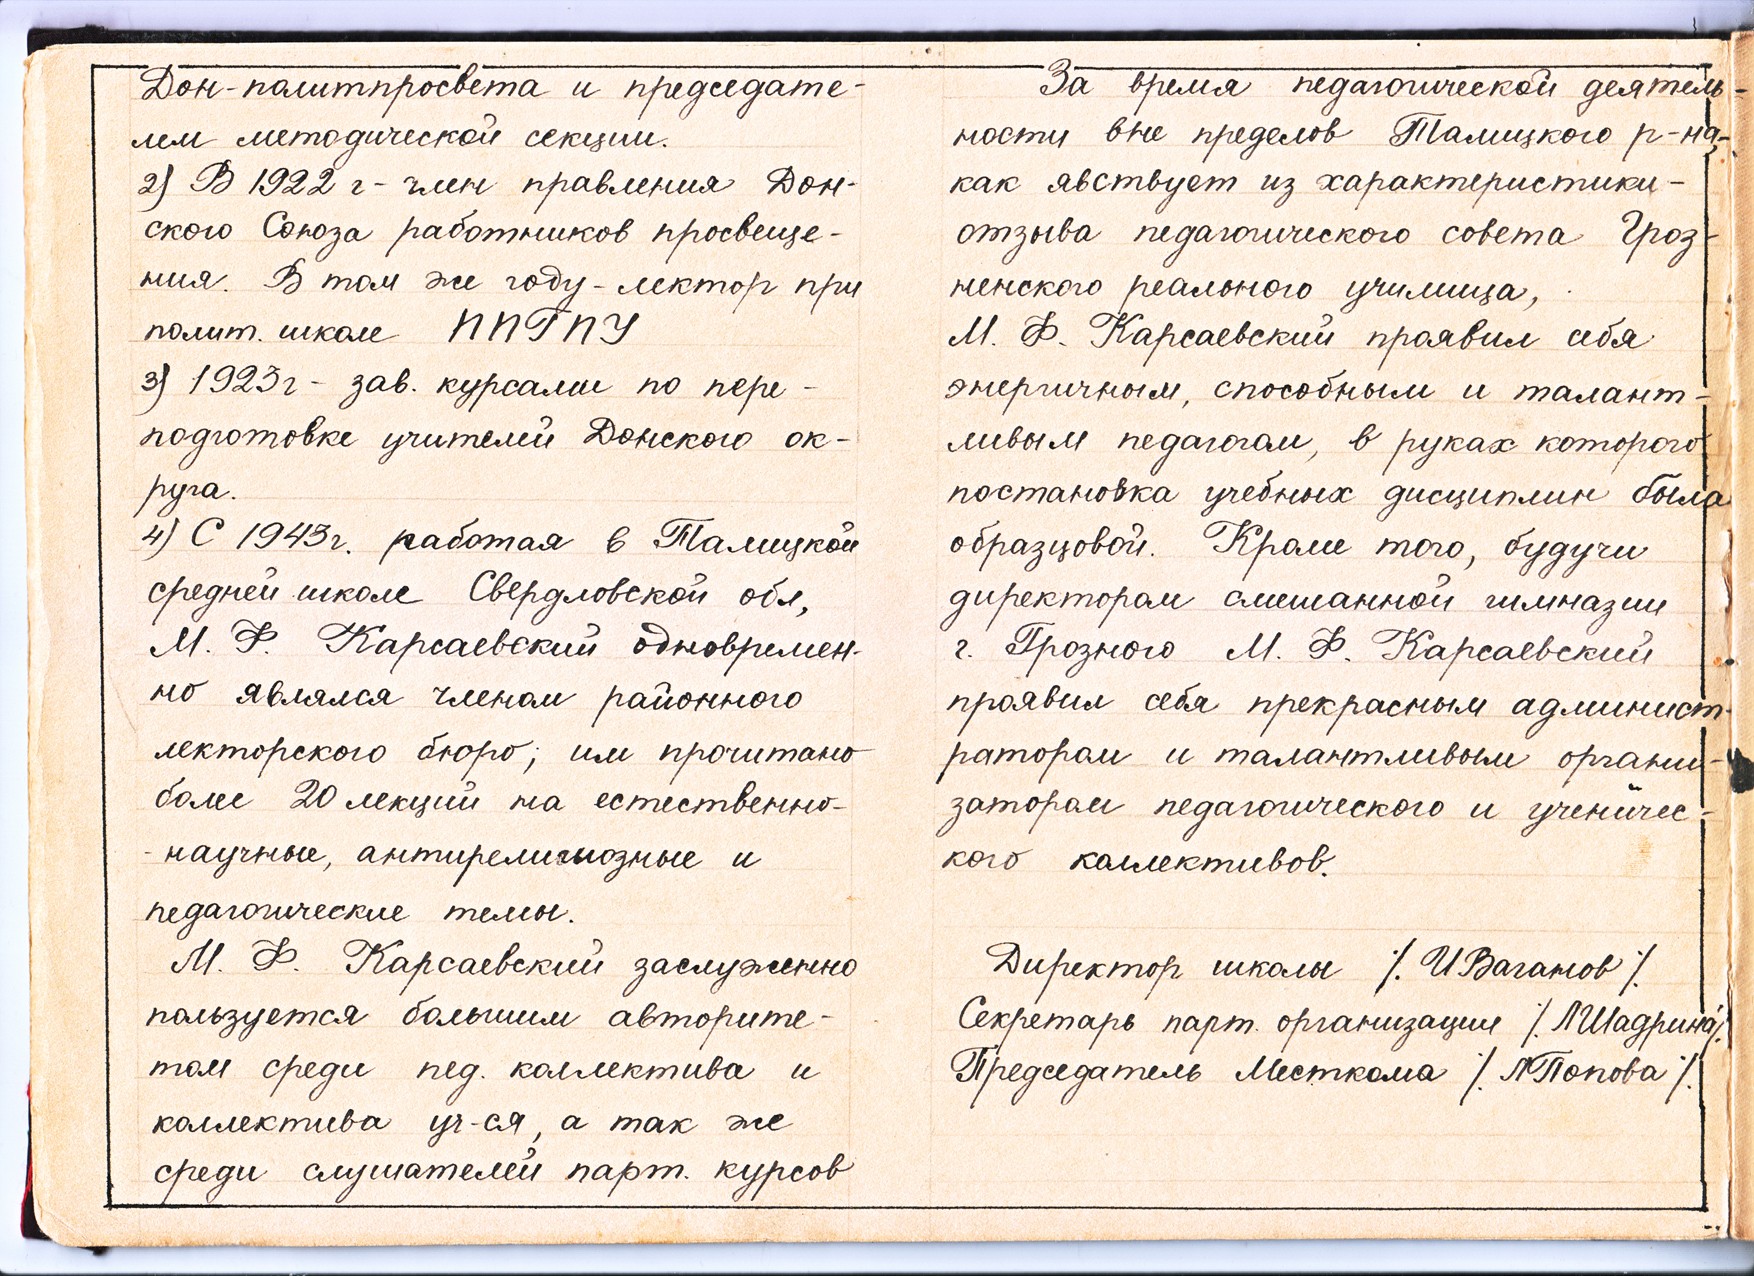 Дон-политпросвета и председате-
лем методической секции.
2) В 1922 г - член правления Дон-
ского Союза работников просвеще-
ния. В том же году - лектор при
полит. школе ППГПУ
3) 1923 г - зав. курсами по пере-
подготовке учителей Донского ок-
руга.
4) С 1943 г. работая в Талицкой
средней школе Свердловской обл,
М. Ф. Карсаевский одновремен-
но являлся членом районного
лекторского бюро; им прочитано
более 20 лекций на естественно-
-научные, антирелигиозные и
педагогические темы.
М. Ф. Карсаевский заслуженно
пользуется большим авторите-
том среди пед. коллектива и
коллектива уч-ся, а так же
среди слушателей парт. курсов
За время педагогической деятель-
ности вне пределов Талицкого р-на-
как явствует из характеристики-
отзыва педагогического совета Гроз-
ненского реального училища,
М. Ф. Карсаевский проявил себя
энергичным, способным и талант-
ливым педагогом, в руках которого
постановка учебных дисциплин была
образцовой. Кроме того, будучи
директором смешанной гимназии
г. Грозного М. Ф. Карсаевский
проявил себя прекрасным админист-
ратором и талантливым органи-
затором педагогического и ученичес-
кого коллективов.
Директор школы /. И Ваганов /.
Секретарь парт. организации /. Л Шадрина /.
Председатель Месткома /. Л Попова /.